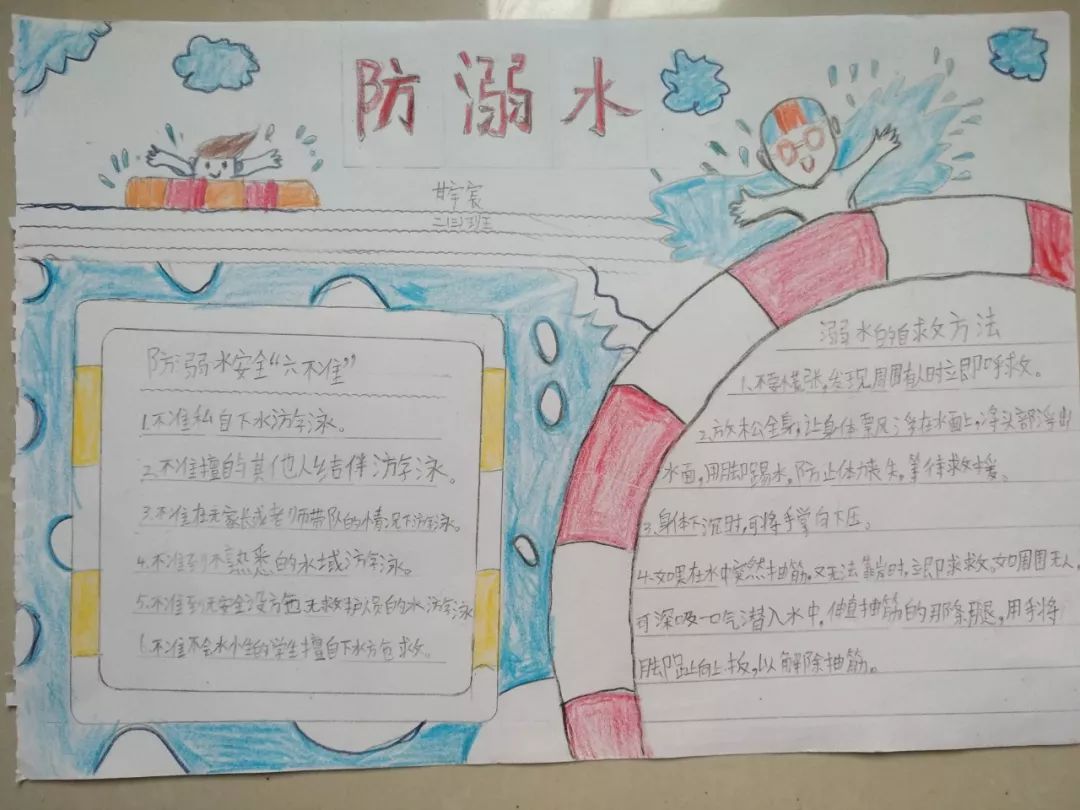 防溺水
甘宇宸
二(三)班
防溺水安全“六不准”
1.不准私自下水游泳。
2.不准擅的与其他人结伴游泳。
3.不准在无家长或老师带队的情况下游泳。
4.不准到不熟悉的水域游泳。
5.不准到无安全设施无救护员的水游泳
6.不准不会水性的学生擅自下水施救。
溺水的自救方法
1.不要慌张,发现周围有人时立即呼救。
2.放松全身,让身体飘浮在水面上,将头部浮出
水面,用脚踢水,防止体力丧失,等待救援。
3.身体下沉时,可将手掌向下压。
4.如果在水中突然抽筋。又无法靠岸时,立即求救。如周围无人,
可深吸一口气潜入水中,伸直抽筋的那条腿,用手将
脚趾向上扳,以解除抽筋。